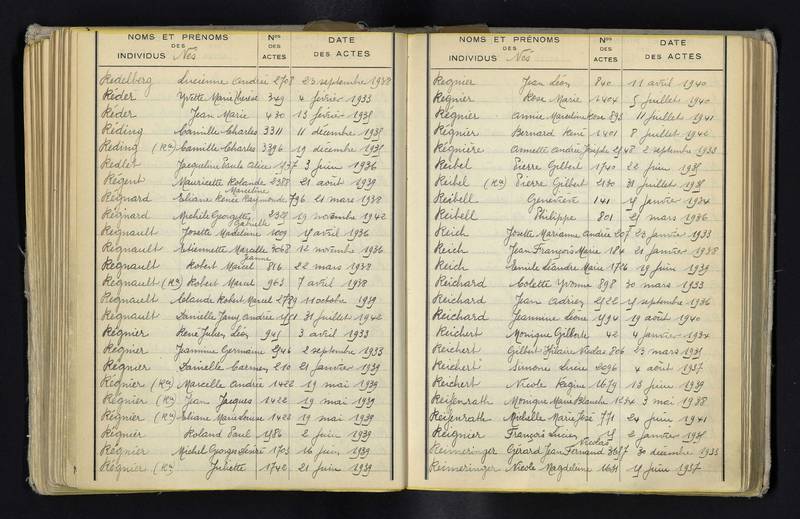 NOMS ET PRÉNOMS Nos DATE
DES DES
INDIVIDUS Nés ACTES DES ACTES
Redelberg Lucienne Andrée 2708 23 septembre 1938
Réder Yvette Marie Thérèse 349 4 février 1933
Réder Jean Marie 430 13 février 1938
Réding Camille Charles 3311 11 décembre 1938
Reding (Rn) Camille Charles 3396 19 décembre 1938
Redlet Jacqueline Paule Alice 1537 3 juin 1936
Régent Mauricette Rolande 2388 21 août 1939
Marceline
Régnard Eliane Renée Raymonde 796 21 mars 1938
Régnard Michèle Georgette 2329 19 novembre 1942
Gabrielle
Regnault Josette Madeleine 1009 4 avril 1936
Régnault Etiennette Marcelle 3068 12 novembre 1936
Jeanne
Regnault Robert Marcel 816 22 mars 1938
Régnault (Rn) Robert Marcel 963 7 avril 1938
Régnault Claude Robert Marcel 2789 11 octobre 1939
Régnault Danielle Andrée 31 juillet 1942
Régnier René Julien Léon 941 3 avril 1933
Régnier Jeannine Germaine 2546 2 septembre 1933
Régnier Danielle Carmen 210 21 janvier 1939
Régnier (Rn) Marcelle Andrée 1422 19 mai 1939
Régnier (Rn) Jean Jacques 1422 19 mai 1939
Régnier (Rn) Eliane Marie Louise 1422 19 mai 1939
Régnier Roland Paul 1586 2 juin 1939
Régnier Michel Georges 1703 16 juin 1939
Régnier (Rn) Juliette 1742 21 juin 1939
NOMS ET PRÉNOMS Nos DATE
DES DES
INDIVIDUS Nés ACTES DES ACTES
Regnier Jean Léon 840 11 avril 1940
Régnier Rose Marie 1404 5 juillet 1940
Régnier Annie Marceline Rose 893 11 juillet 1941
Régnier Bernard René 1401 8 juillet 1946
Régnière Annette Andrée Josèphe 2548 2 septembre 1933
Reibel Pierre Gilbert 1740 22 juin 1938
Reibel (Rn) Pierre Gilbert 2130 31 juillet 1938
Reibell Geneviève 141 janvier 1934
Reibell Philippe 801 mars 1936
Reich Josette Marianne Andrée 207 23 janvier 1933
Reich Jean François Marie 184 21 janvier 1938
Reich Emile Léandre Marie 1726 19 juin 1939
Reichard Colette Yvonne 898 30 mars 1933
Reichard Jean Adrien 2522 septembre 1936
Reichard Jeannine Léone 1594 19 août 1940
Reichert Monique Gilberte 42 4 janvier 1934
Reichert Gilbert Hilaire Nicolas 806 23 mars 1931
Reichert Simone Lucie 2096 4 août 1937
Reichert Nicole Régine 1679 13 juin 1939
Reifenrath Monique Marie Blanche 1254 3 mai 1938
Reifenrath Michelle Marie José 771 24 juin 1941
Reignier François Lucien janvier 1938
Nicolas
Reimeringer Gérard Jean Fernand 3687 30 décembre 1935
Reimeringer Nicole Magdeleine 1631 juin 1937